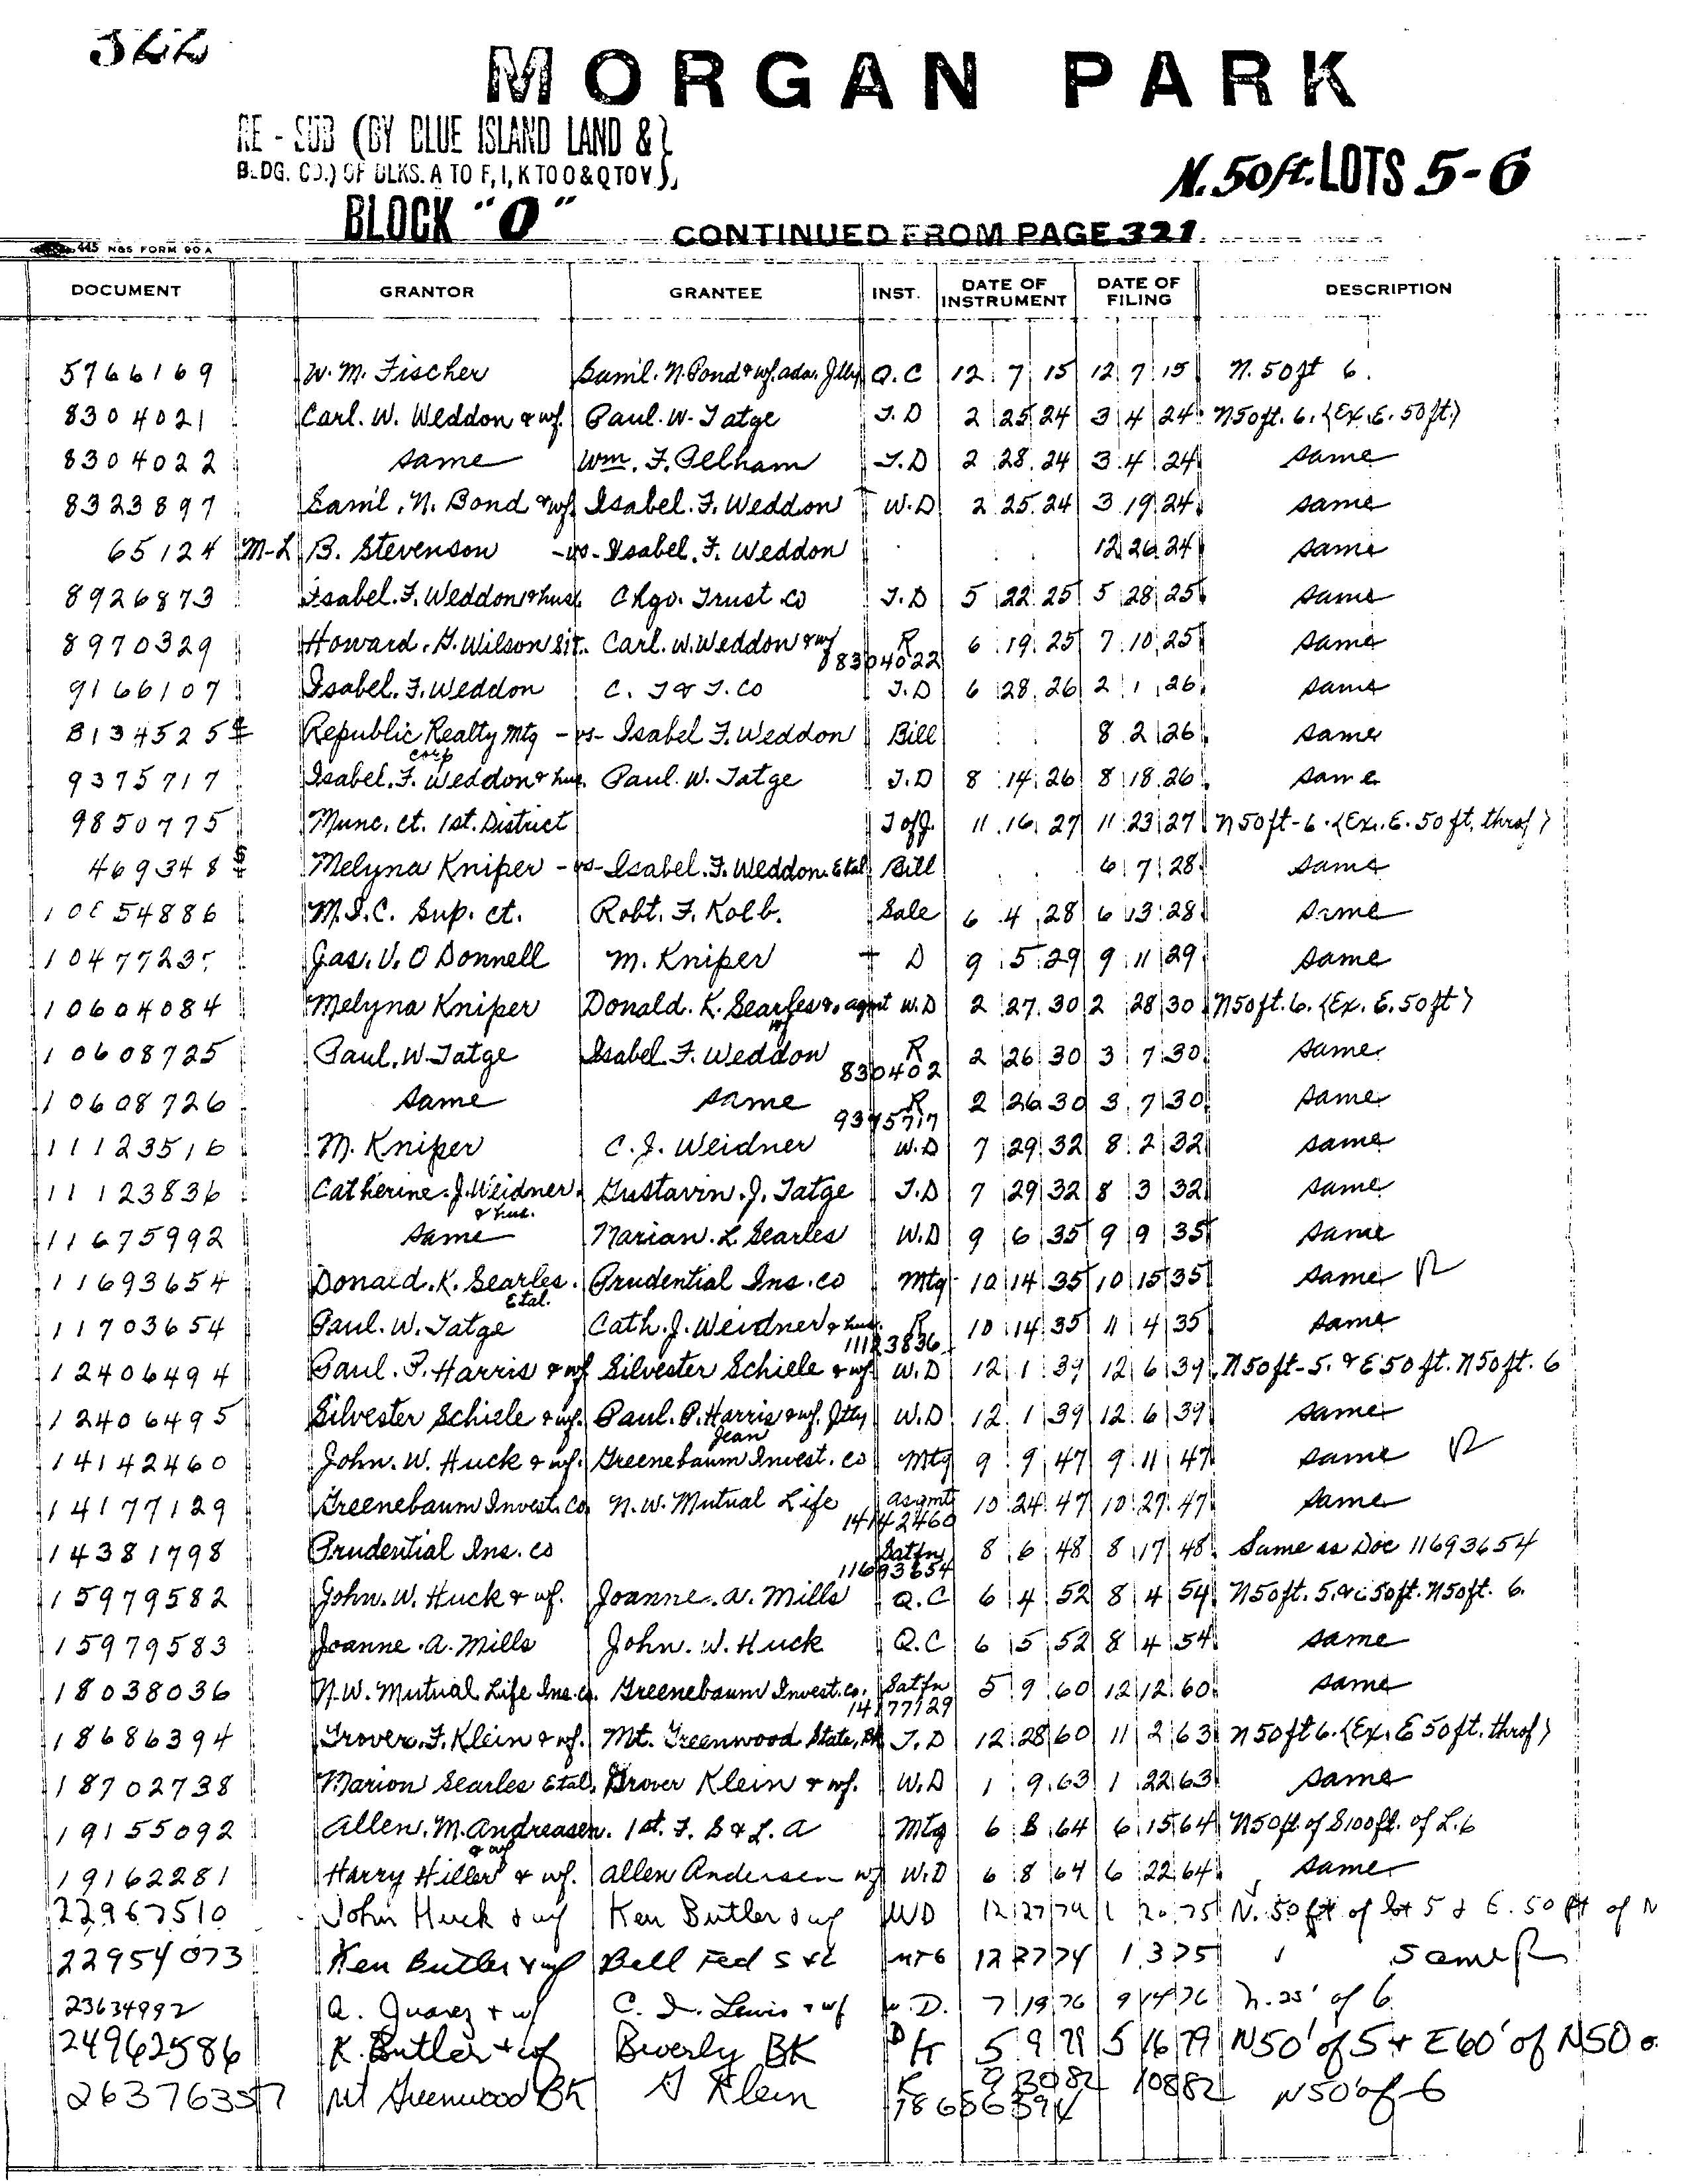 322
MORGAN PARK
RE - SUB (BY BLUE ISLAND LAND &
BLDG. CO.) OF BLKS. A TO F, I, K TO O & Q TO V),
N. 50 ft. LOTS 5-6
BLOCK "O"
CONTINUED FROM PAGE 321
445 N&S FORM 90 A
DOCUMENT GRANTOR GRANTEE INST. DATE OF INSTRUMENT DATE OF FILING DESCRIPTION
5766169 W. M. Fischer Saml. N. Bond & wf. ada. Jtly Q.C 12 7 15 12 7 15 N. 50 ft 6.
8304021 Carl. W. Weddon & wf. Paul. W. Tatge T.D 2 25 24 3 4 24 N 50 ft. 6. (Ex. E. 50 ft.)
8304022 same Wm. F. Pelham T.D 2 28 24 3 4 24 same
8323897 Saml. N. Bond & wf. Isabel. F. Weddon W.D 2 25 24 3 19 24 same
65124 M-L B. Stevenson -vs- Isabel. F. Weddon 12 26 24 same
8926873 Isabel. F. Weddon & hus. Chgo. Trust Co T.D 5 22 25 5 28 25 same
8970329 Howard. G. Wilson Sit. Carl. W. Weddon & wf R 8304022 6 19 25 7 10 25 same
9166107 Isabel. F. Weddon C. T & T. Co T.D 6 28 26 2 1 26 same
B134525 Republic Realty Mtg Corp -vs- Isabel F. Weddon Bill 8 2 26 same
9375717 Isabel. F. Weddon & hus. Paul. W. Tatge T.D 8 14 26 8 18 26 same
9850775 Munc. ct. 1st. District T of J. 11 16 27 11 23 27 N 50 ft-6. (Ex. E. 50 ft. throf)
469348 Melyna Kniper -vs- Isabel. F. Weddon. Etal Bill 6 7 28 same
54886 M.I.C. Sup. ct. Robt. F. Kolb. Sale 6 4 28 6 13 28 same
1047723 Jas. V. O Donnell M. Kniper D 9 5 29 9 11 29 same
10604084 Melyna Kniper Donald. K. Searles & wf agmt W.D 2 27 30 2 28 30 N 50 ft. 6. (Ex. E. 50 ft)
10608725 Paul. W. Tatge Isabel F. Weddon R 830402 2 26 30 3 7 30 same
10608726 same same R 9375717 2 26 30 3 7 30 same
11123516 M. Kniper C. J. Weidner W.D 7 29 32 8 2 32 same
11123836 Catherine. J. Weidner & hus. Gustavin. J. Tatge T.D 7 29 32 8 3 32 same
11675992 same Marian. L Searles W.D 9 6 35 9 9 35 same
11693654 Donald. K. Searles. Etal. Prudential Ins. co Mtg 10 14 35 10 15 35 same R
11703654 Paul. W. Tatge Cath. J. Weidner & hus. R 11123836 10 14 35 11 4 35 same
12406494 Paul. P. Harris & wf Silvester Schiele & wf. W.D 12 1 39 12 6 39 N 50 ft-5. & E 50 ft. N 50 ft. 6
12406495 Silvester Schiele & wf. Paul. P. Harris & wf. Jean Jtly W.D 12 1 39 12 6 39 same
14142460 John. W. Huck & wf. Greenebaum Invest. co Mtg 9 9 47 9 11 47 same R
14177129 Greenebaum Invest. Co. N. W. Mutual Life asgmt 14142460 10 24 47 10 27 47 same
14381798 Prudential Ins. co Satfn 11693654 8 6 48 8 17 48 Same as Doc 11693654
15979582 John. W. Huck & wf. Joanne. A. Mills Q.C 6 4 52 8 4 54 N 50 ft. 5. & E 50 ft. N 50 ft. 6.
15979583 Joanne. A. Mills John. W. Huck Q.C 6 5 52 8 4 54 same
18038036 N.W. Mutual Life Ins. co. Greenebaum Invest. co. Satfn 14177129 5 9 60 12 12 60 same
18686394 Grover. F. Klein & wf. Mt. Greenwood State. Bk T.D 12 28 60 11 2 63 N 50 ft 6. (Ex. E 50 ft. throf)
18702738 Marion Searles Etal. Grover Klein & wf. W.D 1 9 63 1 22 63 same
19155092 Allen. M. Andreasen. & wf 1st. F. S & L. A Mtg 6 8 64 6 15 64 N 50 ft. of S 100 ft. of L. 6
19162281 Harry Hiller & wf. Allen Andersen wf W.D 6 8 64 6 22 64 same
22967510 John Huck & wf Ken Butler & wf WD 12 27 74 1 20 75 N. 50 ft of lot 5 & E. 50 ft of N
22954073 Ken Butler & wf Bell Fed S & L MTG 12 27 74 1 3 75 same R
23634992 A. Juarez & wf C. L. Lewis & wf W.D. 7 19 76 9 14 76 N. 25' of 6
24962586 K. Butler & wf Beverly BK 5 9 79 5 16 79 N50' of 5 + E60' of N50 o
26376357 Mt Greenwood Bk G Klein R 18686394 9 30 82 10 8 82 N50' of 6